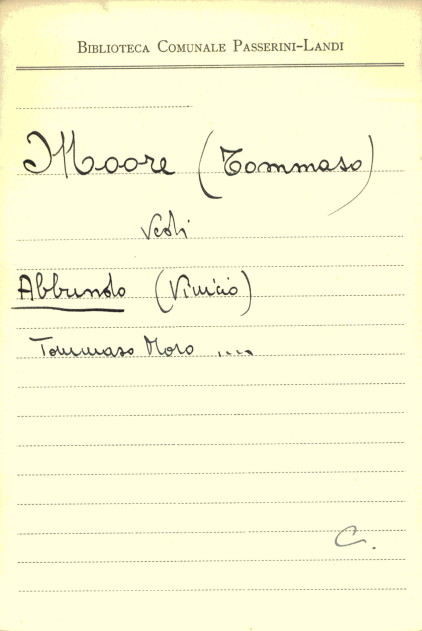 BIBLIOTECA COMUNALE PASSERINI-LANDI
Moore (Tommaso)
Vedi
Abbundo (Vinicio)
Tommaso Moro ....
C.